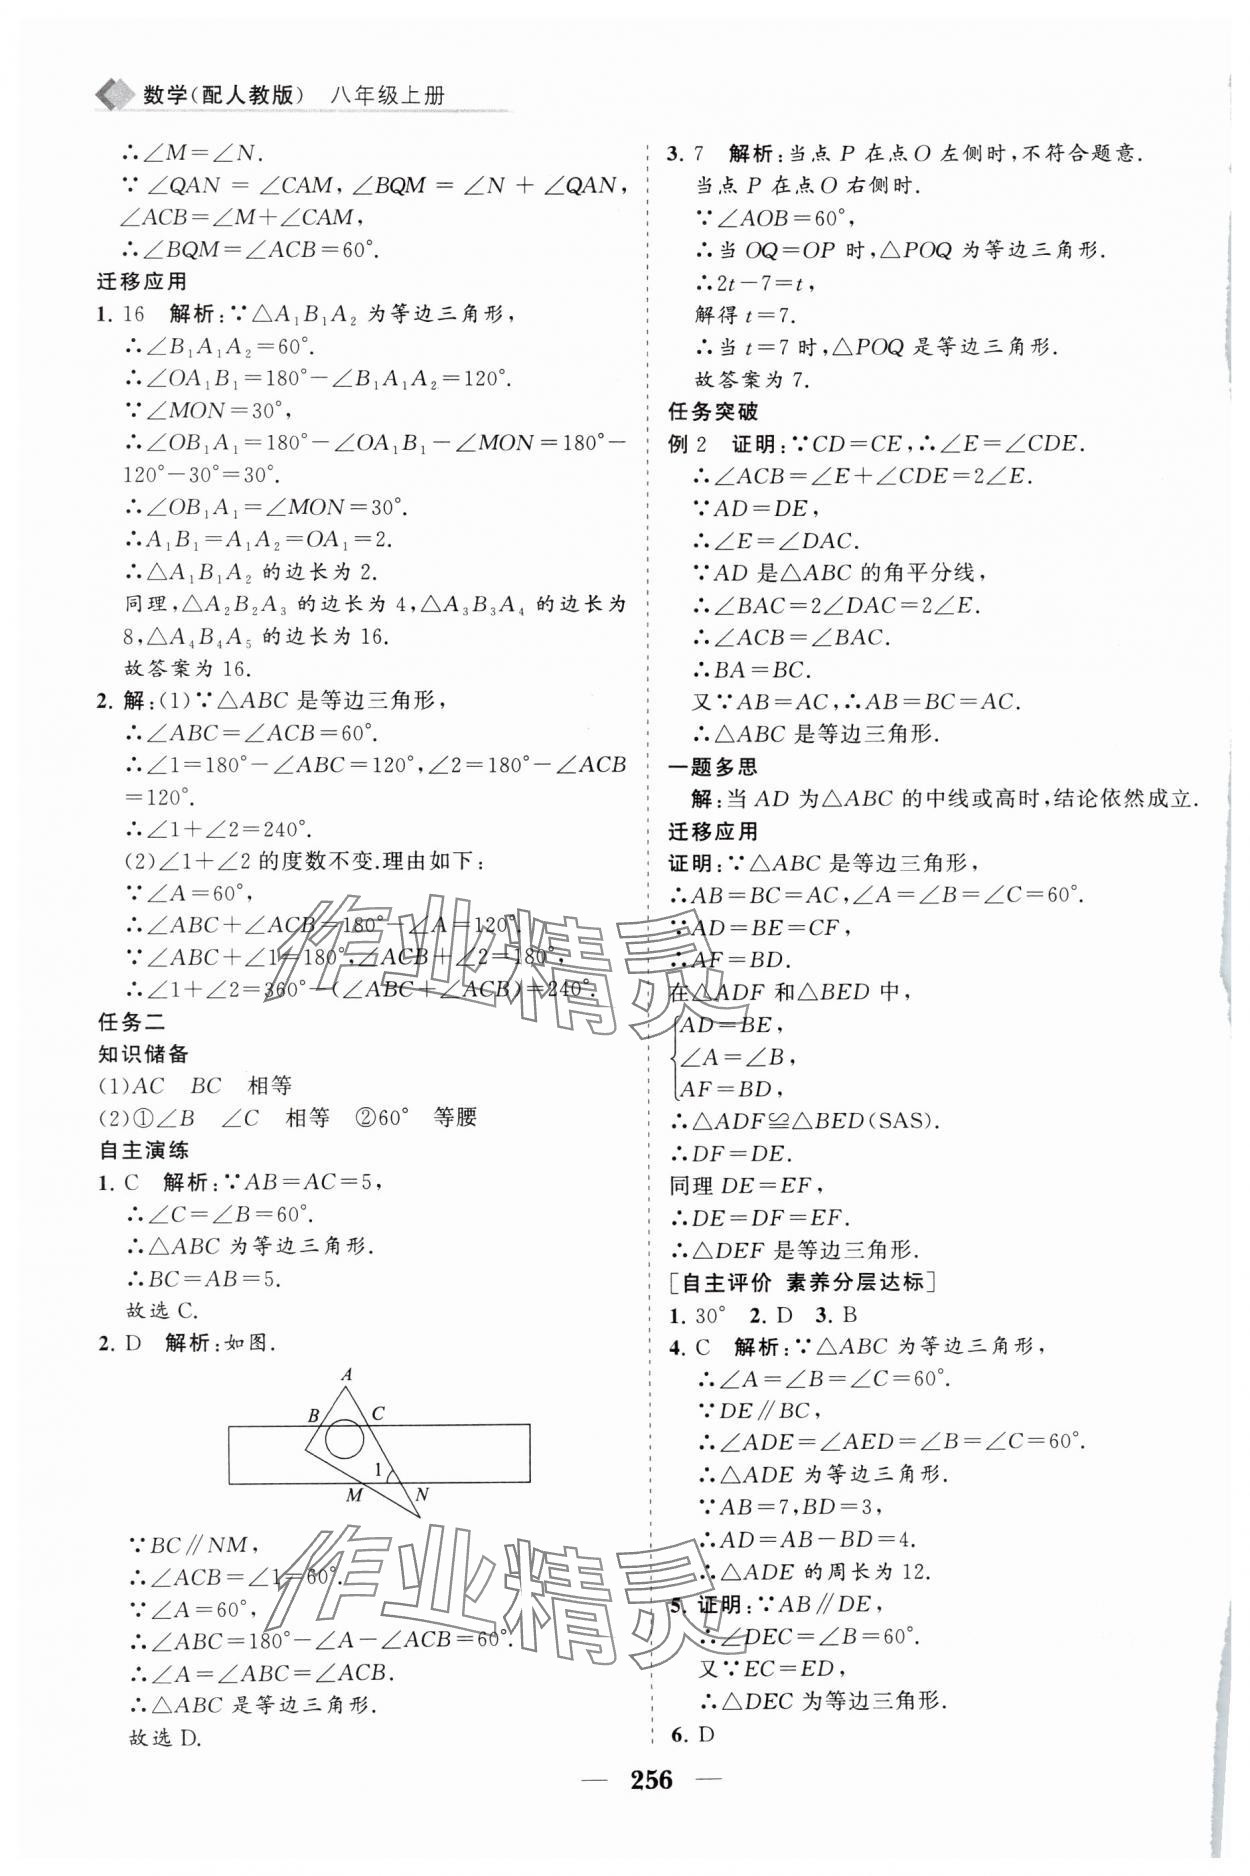 数学(配人教版) 八年级上册
∴∠M=∠N.
∵∠QAN=∠CAM,∠BQM=∠N+∠QAN,
∠ACB=∠M+∠CAM,
∴∠BQM=∠ACB=60°.
迁移应用
1. 16 解析:∵△A₁B₁A₂ 为等边三角形,
∴∠B₁A₁A₂=60°.
∴∠OA₁B₁=180°-∠B₁A₁A₂=120°.
∵∠MON=30°,
∴∠OB₁A₁=180°-∠OA₁B₁-∠MON=180°-
120°-30°=30°.
∴∠OB₁A₁=∠MON=30°.
∴A₁B₁=A₁A₂=OA₁=2.
∴△A₁B₁A₂ 的边长为 2.
同理,△A₂B₂A₃ 的边长为 4,△A₃B₃A₄ 的边长为
8,△A₄B₄A₅ 的边长为 16.
故答案为 16.
2. 解:(1)∵△ABC 是等边三角形,
∴∠ABC=∠ACB=60°.
∴∠1=180°-∠ABC=120°,∠2=180°-∠ACB
=120°.
∴∠1+∠2=240°.
(2)∠1+∠2的度数不变.理由如下:
∵∠A=60°,
∴∠ABC+∠ACB=180°-∠A=120°.
∵∠ABC+∠1=180°,∠ACB+∠2=180°,
∴∠1+∠2=360°-(∠ABC+∠ACB)=240°.
任务二
知识储备
(1)AC BC 相等
(2)①∠B ∠C 相等 ②60° 等腰
自主演练
1. C 解析:∵AB=AC=5,
∴∠C=∠B=60°.
∴△ABC 为等边三角形.
∴BC=AB=5.
故选 C.
2. D 解析:如图.
A
B C
1
M N
∵BC∥NM,
∴∠ACB=∠1=60°.
∵∠A=60°,
∴∠ABC=180°-∠A-∠ACB=60°.
∴∠A=∠ABC=∠ACB.
∴△ABC 是等边三角形.
故选 D.
3. 7 解析:当点 P 在点 O 左侧时,不符合题意.
当点 P 在点 O 右侧时.
∵∠AOB=60°,
∴当 OQ=OP 时,△POQ 为等边三角形.
∴2t-7=t,
解得 t=7.
∴当 t=7 时,△POQ 是等边三角形.
故答案为 7.
任务突破
例 2 证明:∵CD=CE,∴∠E=∠CDE.
∴∠ACB=∠E+∠CDE=2∠E.
∵AD=DE,
∴∠E=∠DAC.
∵AD 是△ABC 的角平分线,
∴∠BAC=2∠DAC=2∠E.
∴∠ACB=∠BAC.
∴BA=BC.
又∵AB=AC,∴AB=BC=AC.
∴△ABC 是等边三角形.
一题多思
解:当 AD 为△ABC 的中线或高时,结论依然成立.
迁移应用
证明:∵△ABC 是等边三角形,
∴AB=BC=AC,∠A=∠B=∠C=60°.
∵AD=BE=CF,
∴AF=BD.
在△ADF 和△BED 中,
AD=BE,
∠A=∠B,
AF=BD,
∴△ADF≌△BED(SAS).
∴DF=DE.
同理 DE=EF,
∴DE=DF=EF.
∴△DEF 是等边三角形.
[自主评价 素养分层达标]
1. 30° 2. D 3. B
4. C 解析:∵△ABC 为等边三角形,
∴∠A=∠B=∠C=60°.
∵DE∥BC,
∴∠ADE=∠AED=∠B=∠C=60°.
∴△ADE 为等边三角形.
∵AB=7,BD=3,
∴AD=AB-BD=4.
∴△ADE 的周长为 12.
5. 证明:∵AB∥DE,
∴∠DEC=∠B=60°.
又∵EC=ED,
∴△DEC 为等边三角形.
6. D
— 256 —
作业精灵
作业精灵